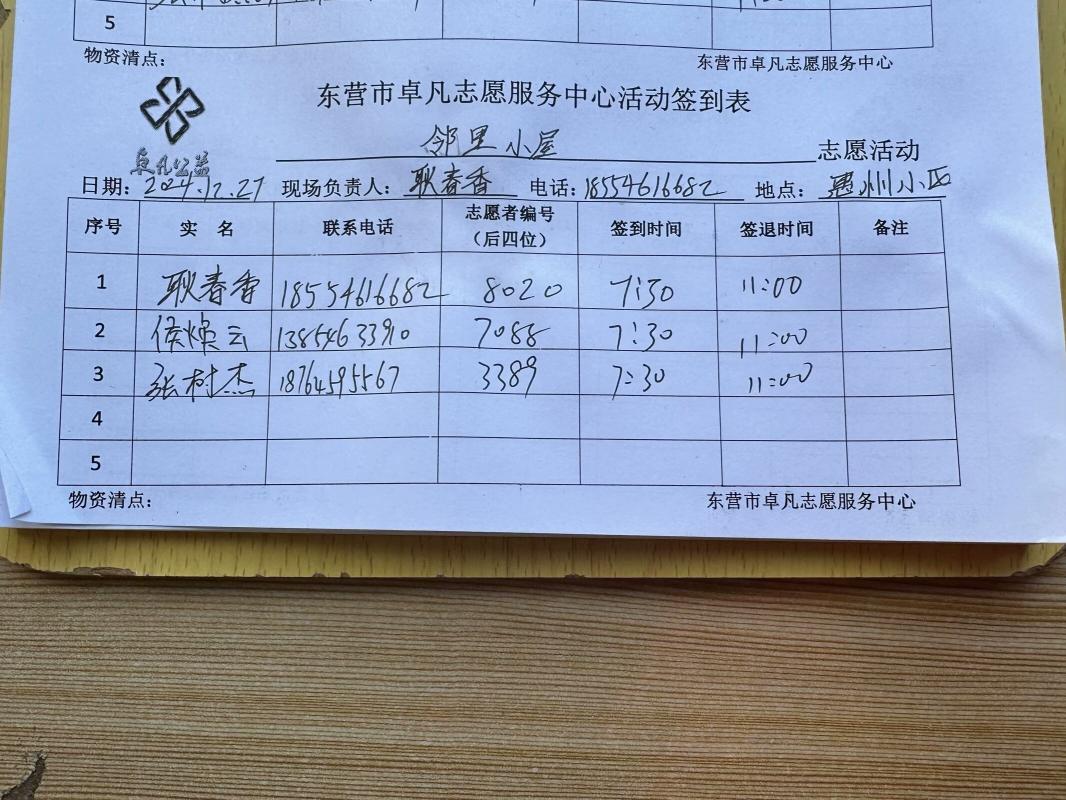 5
物资清点：
东营市卓凡志愿服务中心
东营市卓凡志愿服务中心活动签到表
卓凡公益
邻里小屋 志愿活动
日期：2024.12.27 现场负责人：耿春香 电话：18554616682 地点：惠州小区
序号 实 名 联系电话 志愿者编号（后四位） 签到时间 签退时间 备注
1 耿春香 18554616682 8020 7:30 11:00
2 侯焕云 13854633910 7088 7:30 11:00
3 张树杰 18764595567 3389 7:30 11:00
4
5
物资清点：
东营市卓凡志愿服务中心